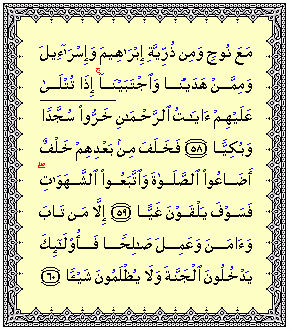 مَعَ نُوحٍ وَمِن ذُرِّيَّةِ إِبْرَٰهِيمَ وَإِسْرَٰٓءِيلَ
وَمِمَّنْ هَدَيْنَا وَٱجْتَبَيْنَآ ۚ إِذَا تُتْلَىٰ
عَلَيْهِمْ ءَايَٰتُ ٱلرَّحْمَٰنِ خَرُّوا۟ سُجَّدًا
وَبُكِيًّا ٥٨ فَخَلَفَ مِنۢ بَعْدِهِمْ خَلْفٌ
أَضَاعُوا۟ ٱلصَّلَوٰةَ وَٱتَّبَعُوا۟ ٱلشَّهَوَٰتِ ۖ
فَسَوْفَ يَلْقَوْنَ غَيًّا ٥٩ إِلَّا مَن تَابَ
وَءَامَنَ وَعَمِلَ صَٰلِحًا فَأُو۟لَٰٓئِكَ
يَدْخُلُونَ ٱلْجَنَّةَ وَلَا يُظْلَمُونَ شَيْـًٔا ٦٠